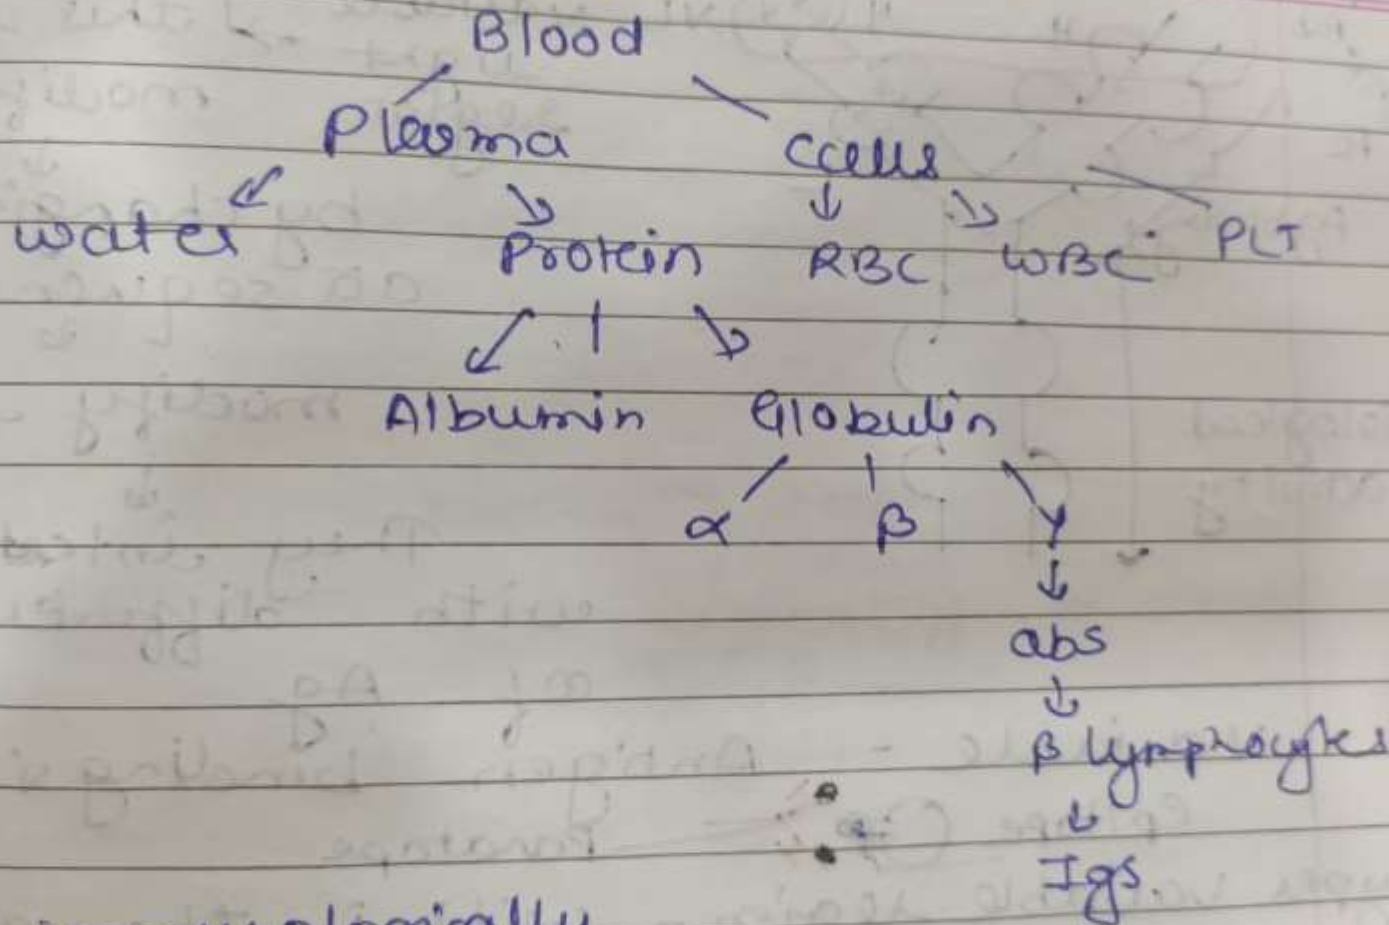 Blood
Plasma Ccells
water Protein RBC WBC PLT
Albumin Globulin
α β γ
abs
β lymphocytes
Igs.